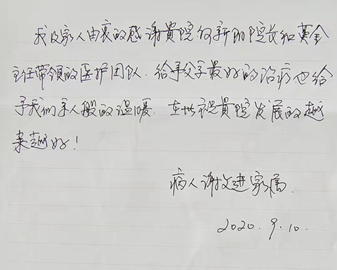 我及家人由衷的感谢贵院何新明院长和黄金
主任带领的医护团队.给予父亲最好的治病也给
予我们亲人般的温暖.在此祝贵院发展的越
来越好!
病人谢文进家属.
2020.9.10.